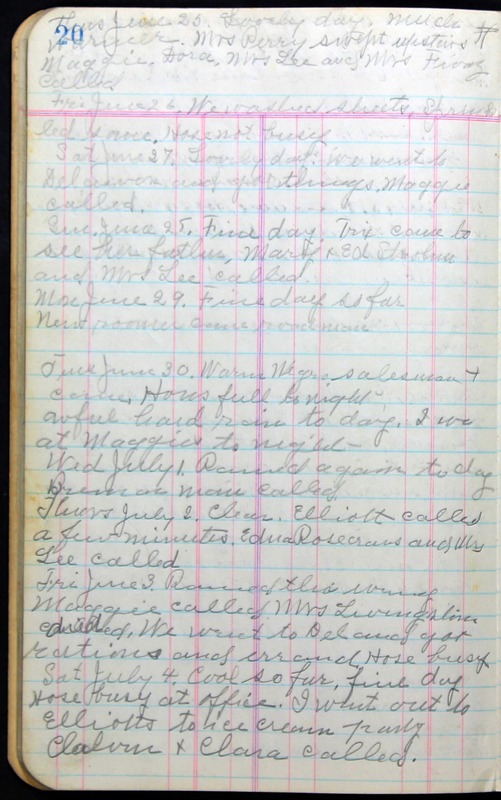 20
Thurs June 25. Lovely day, much
warmer. Mrs Perry swept upstairs
Maggie, Dora, Mrs Lee and Mrs
called
Fri June 26. We washed sheets,
led some, Hose not busy
Sat June 27. Lovely day. We went to
and got things, Maggie
called.
Sun. June 25. Fine day. Trix came to
see her father, Mary + Ed
and Mrs Lee called.
Mon June 29. Fine day so far
New roomer came
Tues June 30. Warm salesman +
came, Hous full to night
awful hard rain to day. I we
at Maggies to night
Wed July 1. Rained again to day
man called
Thurs July 2. Clear. Elliott called
a few minutes. Edna Rosecrans and Mrs
Lee called
Fri June 3. Rained this
Maggie called Mrs Livingston
called. We went to Del and got
rations and errand, Hose busy
Sat July 4. Cool so far, fine day
Hose busy at office. I went out to
Elliotts to ice cream party
Calvin + Clara called.